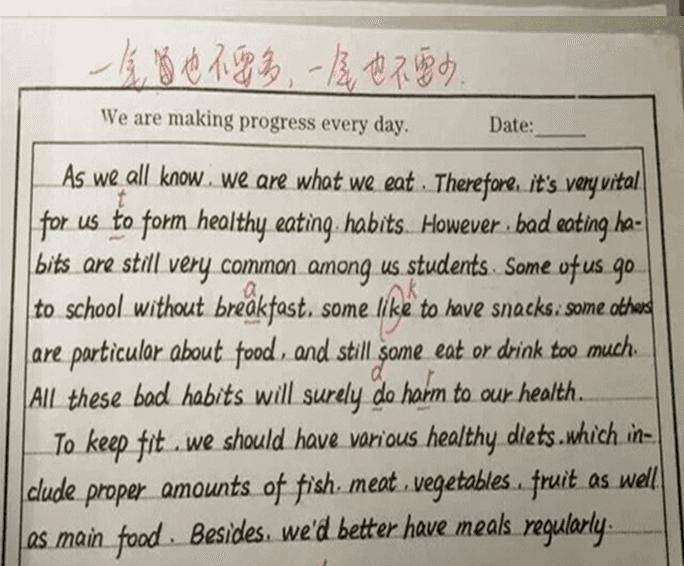 一尾也不要多，一尾也不要少.
We are making progress every day. Date:
As we all know, we are what we eat. Therefore, it's very vital
t
for us to form healthy eating habits. However, bad eating ha-
bits are still very common among us students. Some of us go
a k
to school without breakfast, some like to have snacks; some others
are particular about food, and still some eat or drink too much.
d r
All these bad habits will surely do harm to our health.
To keep fit, we should have various healthy diets, which in-
clude proper amounts of fish, meat, vegetables, fruit as well
as main food. Besides, we'd better have meals regularly.